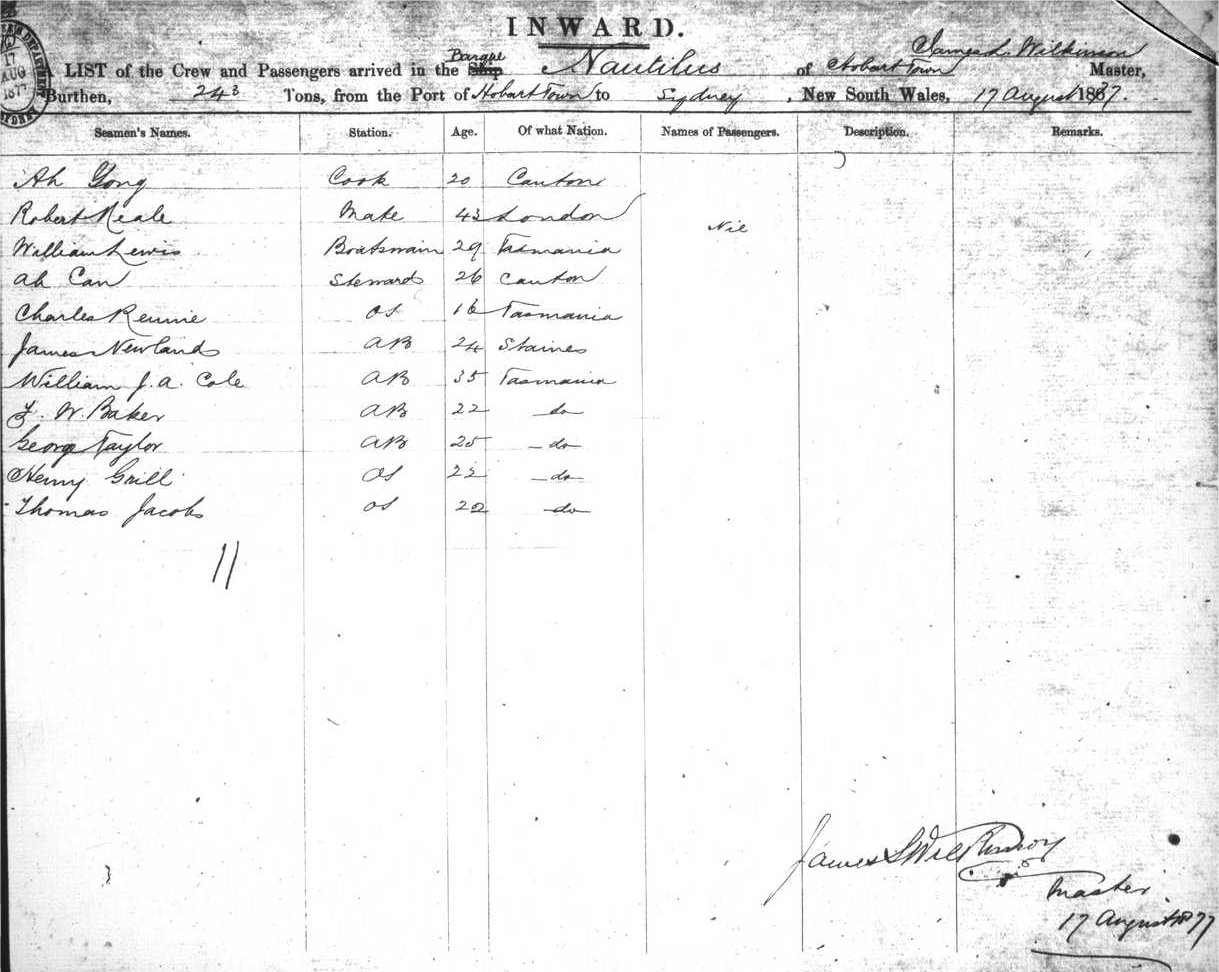 INWARD.
James L. Wilkinson
Barque
LIST of the Crew and Passengers arrived in the Ship Nautilus of Hobart Town Master,
Burthen, 243 Tons, from the Port of Hobart Town to Sydney, New South Wales, 17 August 1877.
17
AUG
1877
SYDNEY
Seamen's Names. Station. Age. Of what Nation. Names of Passengers. Description. Remarks.
Ah Gong Cook 20 Canton
Robert Neale Mate 43 London
Nil
William Lewis Boatswain 29 Tasmania
Ah Can Steward 26 Canton
Charles Rennie OS 16 Tasmania
James Newlands AB 24 Staines
William J. A. Cole AB 35 Tasmania
W. Baker AB 22 do
George Taylor AB 25 do
Henry Grill OS 22 do
Thomas Jacobs OS 22 do
11
James L Wilkinson
Master
17 August 1877